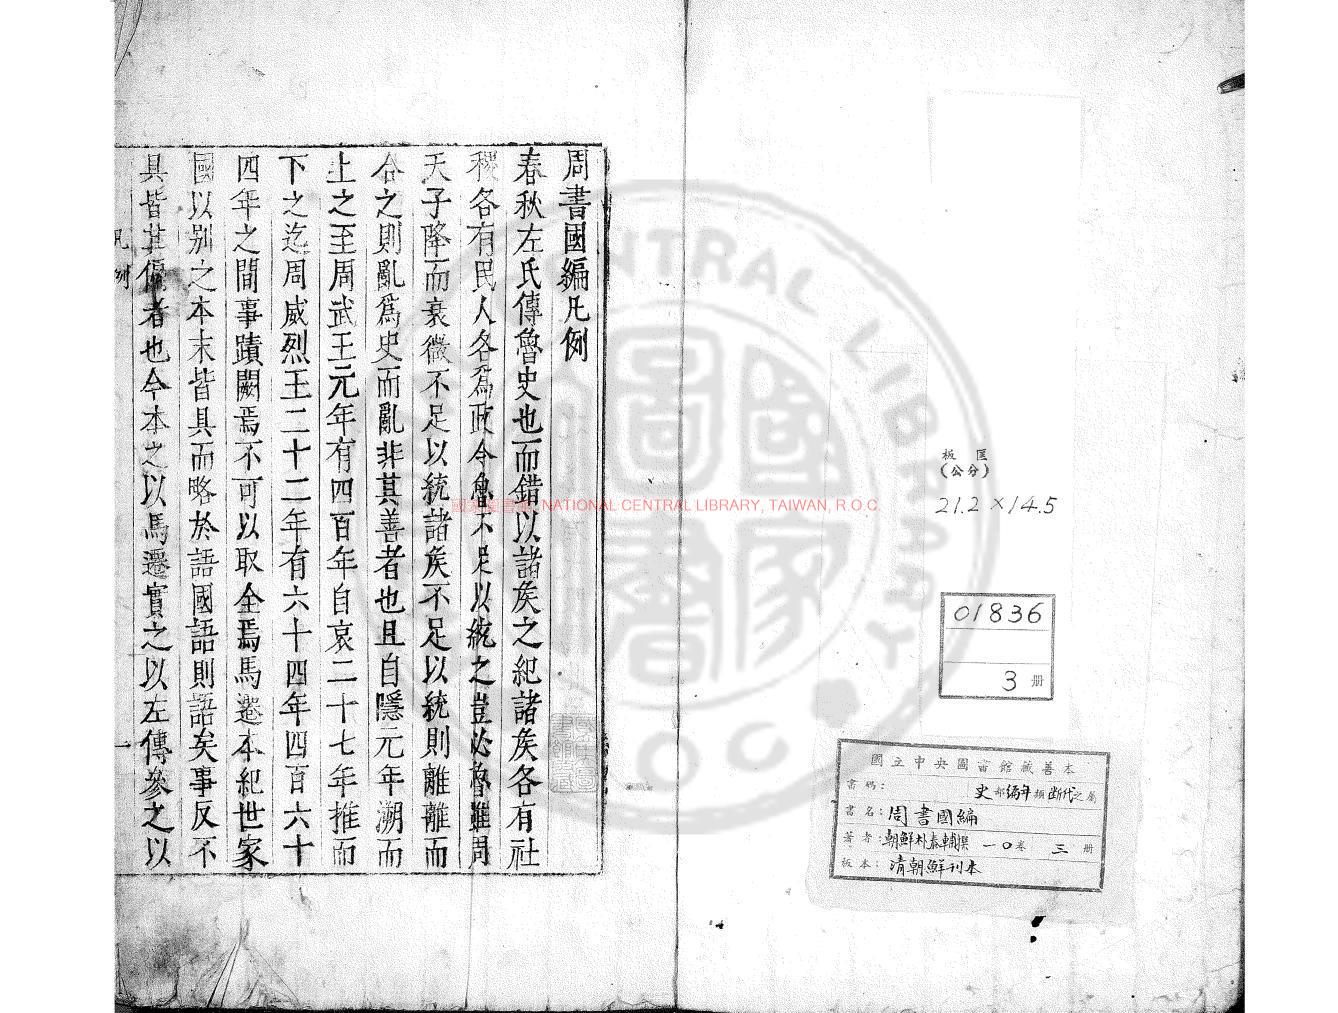 板匡
(公分)
21.2×14.5
01836
3 册
國立中央圖書館藏善本
書碼：
史部編年類斷代之屬
書名：周書國編
著者：朝鮮朴泰輔撰 一〇卷 三 册
板本：清朝鮮刊本
周書國編凡例
春秋左氏傳魯史也而錯以諸矦之紀諸矦各有社
稷各有民人各爲政令魯不足以統之豈必魯雖周
天子降而衰微不足以統諸矦不足以統則離離而
合之則亂爲史而亂非其善者也且自隱元年溯而
上之至周武王元年有四百年自哀二十七年推而
下之迄周威烈王二十二年有六十四年四百六十
四年之間事蹟闕焉不可以取全焉馬遷本紀世家
國以别之本末皆具而略於語國語則語矣事反不
具皆其偏者也今本之以馬遷實之以左傳參之以
凡例
一
國家圖書館, NATIONAL CENTRAL LIBRARY, TAIWAN, R.O.C.